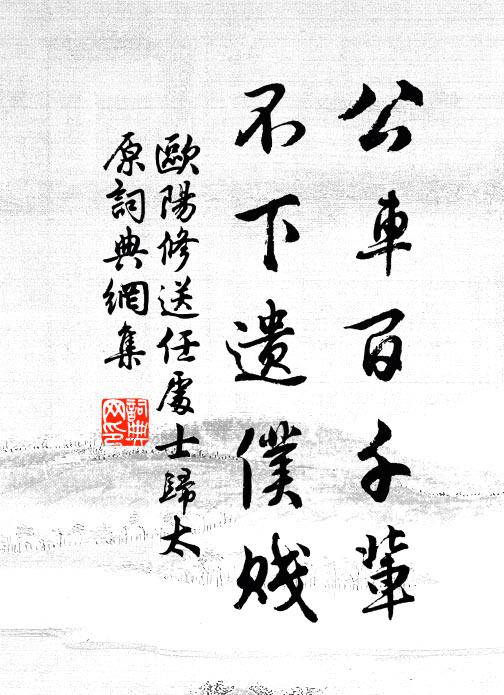 公車百千輩
不下遺僕賤
歐陽修送任處士歸太
原詞典網集
詞典網印